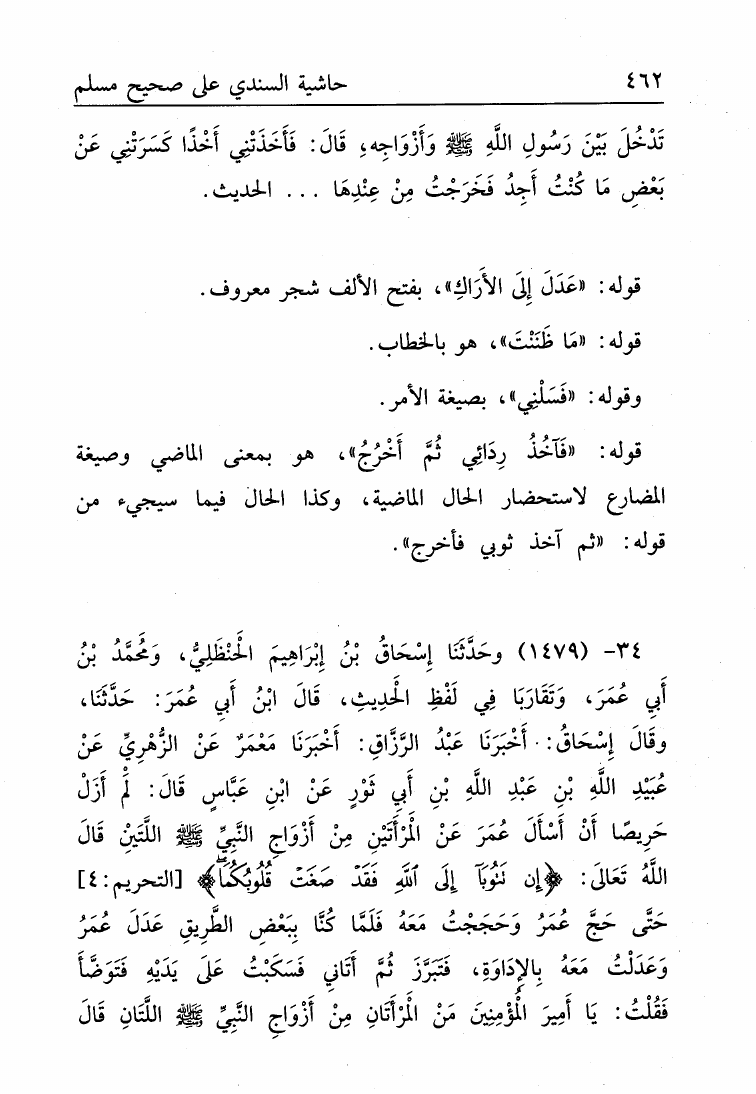 ٤٦٢ حاشية السندي على صحيح مسلم
تَدْخُلَ بَيْنَ رَسُولِ اللَّهِ ﷺ وَأَزْوَاجِهِ، قَالَ: فَأَخَذَتْنِي أَخْذًا كَسَرَتْنِي عَنْ
بَعْضِ مَا كُنْتُ أَجِدُ فَخَرَجْتُ مِنْ عِنْدِهَا ... الحديث.
قوله: «عَدَلَ إِلَى الأَرَاكِ»، بفتح الألف شجر معروف.
قوله: «مَا ظَنَنْتَ»، هو بالخطاب.
وقوله: «فَسَلْنِي»، بصيغة الأمر.
قوله: «فَآخُذُ رِدَائِي ثُمَّ أَخْرُجُ»، هو بمعنى الماضي وصيغة
المضارع لاستحضار الحال الماضية، وكذا الحال فيما سيجيء من
قوله: «ثم آخذ ثوبي فأخرج».
٣٤- (١٤٧٩) وحَدَّثَنَا إِسْحَاقُ بْنُ إِبْرَاهِيمَ الْحَنْظَلِيُّ، وَمُحَمَّدُ بْنُ
أَبِي عُمَرَ، وَتَقَارَبَا فِي لَفْظِ الْحَدِيثِ، قَالَ ابْنُ أَبِي عُمَرَ: حَدَّثَنَا،
وقَالَ إِسْحَاقُ: أَخْبَرَنَا عَبْدُ الرَّزَّاقِ: أَخْبَرَنَا مَعْمَرٌ عَنْ الزُّهْرِيِّ عَنْ
عُبَيْدِ اللَّهِ بْنِ عَبْدِ اللَّهِ بْنِ أَبِي ثَوْرٍ عَنْ ابْنِ عَبَّاسٍ قَالَ: لَمْ أَزَلْ
حَرِيصًا أَنْ أَسْأَلَ عُمَرَ عَنْ الْمَرْأَتَيْنِ مِنْ أَزْوَاجِ النَّبِيِّ ﷺ اللَّتَيْنِ قَالَ
اللَّهُ تَعَالَى: ﴿إِن تَتُوبَآ إِلَى ٱللَّهِ فَقَدْ صَغَتْ قُلُوبُكُمَا﴾ [التحريم:٤]
حَتَّى حَجَّ عُمَرُ وَحَجَجْتُ مَعَهُ فَلَمَّا كُنَّا بِبَعْضِ الطَّرِيقِ عَدَلَ عُمَرُ
وَعَدَلْتُ مَعَهُ بِالإِدَاوَةِ، فَتَبَرَّزَ ثُمَّ أَتَانِي فَسَكَبْتُ عَلَى يَدَيْهِ فَتَوَضَّأَ
فَقُلْتُ: يَا أَمِيرَ الْمُؤْمِنِينَ مَنْ الْمَرْأَتَانِ مِنْ أَزْوَاجِ النَّبِيِّ ﷺ اللَّتَانِ قَالَ